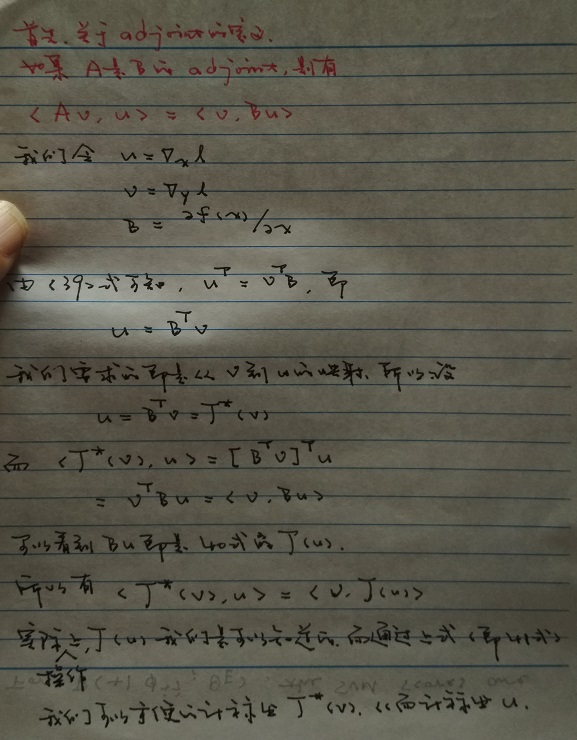 首先,关于adjoint的定义.
如果 A是B的 adjoint,则有
<Av, u> = <v, Bu>
我们令 u = ∇ₓ l
v = ∇ᵧ l
B = ∂f(x)/∂x
由<39>式可知, uᵀ = vᵀB, 即
u = Bᵀv
我们要求的即是从 v到u的映射. 所以设
u = Bᵀv = J*(v)
而 <J*(v), u> = [Bᵀv]ᵀu
= vᵀBu = <v, Bu>
可以看到 Bu 即是 40式的 J(u).
所以有 <J*(v), u> = <v, J(u)>
实际操作上, J(u) 我们是可以知道的. 而通过上式 (即41式)
我们可以方便的计算出 J*(v), 从而计算出 u.